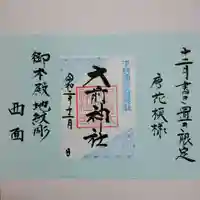 十二月書き置き限定
唐花模様
大前神社
十二月
御本殿地紋彫
西面